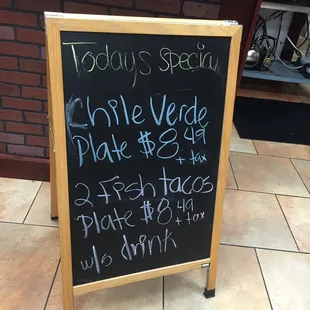 Todays Special
Chile Verde
Plate $8.49
+ tax
2 fish tacos
Plate $8.49
+ tax
w/s drink